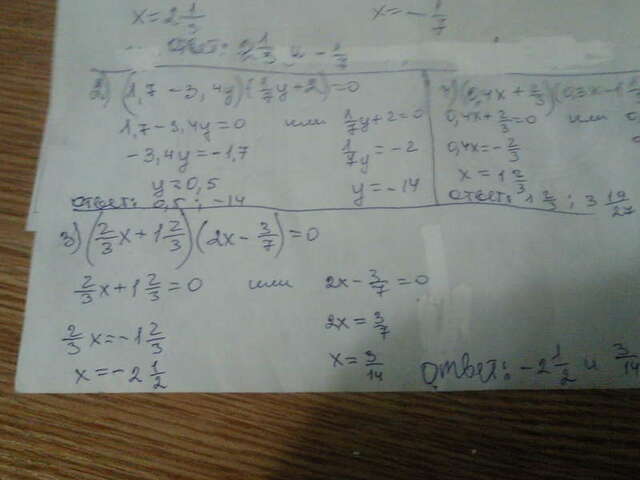 x = 2 1/3
x = - 1/7
Ответ: 2 1/3 и - 1/7
2) (1,7 - 3,4y)(1/7 y + 2) = 0
1,7 - 3,4y = 0 или 1/7 y + 2 = 0
-3,4y = -1,7
1/7 y = -2
y = 0,5
y = -14
Ответ: 0,5; -14
(0,4x + 2/3)(0,3x - 1
0,4x + 2/3 = 0 или
0,4x = - 2/3
x = 1 2/3
Ответ: 1 2/3; 3 19/27
3) (2/3 x + 1 2/3)(2x - 3/7) = 0
2/3 x + 1 2/3 = 0 или 2x - 3/7 = 0
2/3 x = -1 2/3
2x = 3/7
x = -2 1/2
x = 3/14
Ответ: -2 1/2 и 3/14